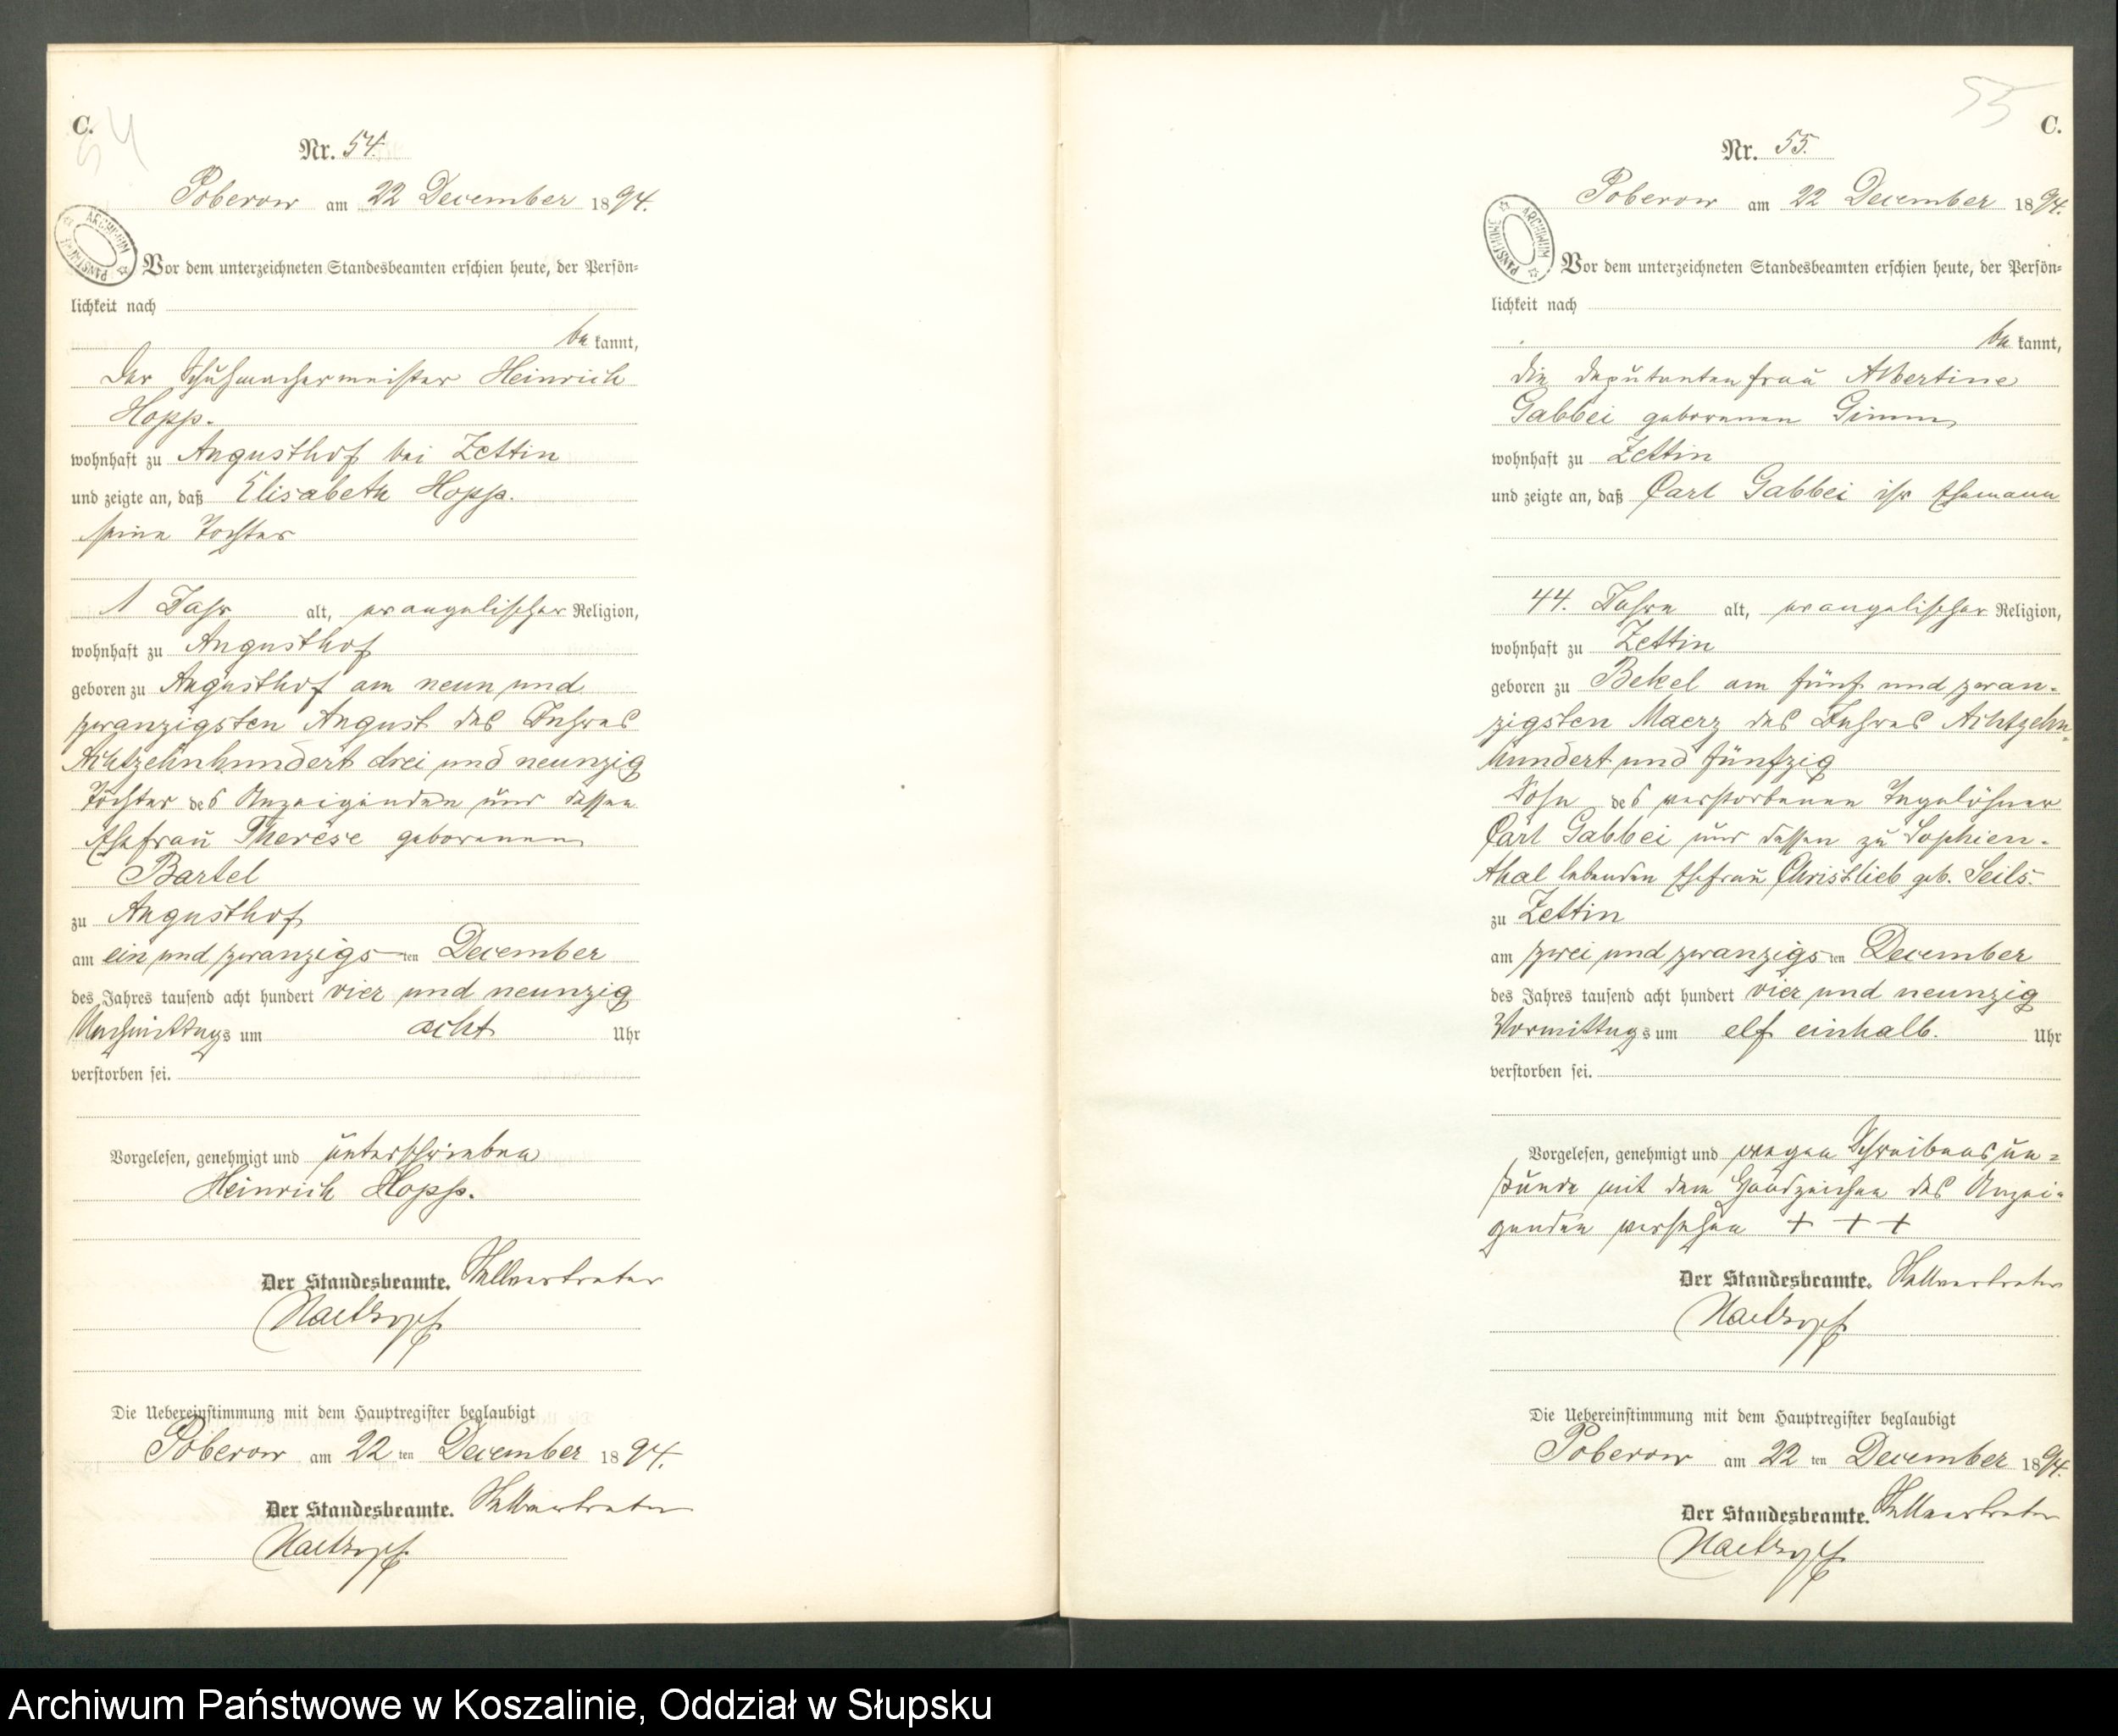 C.
54
Nr. 54.
Poberow am 22 December 1894.
ARCHIWUM PAŃSTWOWE
Vor dem unterzeichneten Standesbeamten erschien heute, der Persön-
lichkeit nach
be kannt,
der Schuhmachermeister Heinrich
Hopp.
wohnhaft zu Augusthof bei Zettin
und zeigte an, daß Elisabeth Hopp.
seine Tochter
1 Jahr alt, evangelischer Religion,
wohnhaft zu Augusthof
geboren zu Augusthof am neun und
zwanzigsten August des Jahres
Achtzehnhundert drei und neunzig
Tochter des Anzeigenden und dessen
Ehefrau Therese geborenen
Bartel
zu Augusthof
am ein und zwanzigsten December
des Jahres tausend acht hundert vier und neunzig
Nachmittags um acht Uhr
verstorben sei.
Vorgelesen, genehmigt und unterschrieben
Heinrich Hopp.
Der Standesbeamte. Stellvertreter
Die Uebereinstimmung mit dem Hauptregister beglaubigt
Poberow am 22 ten December 1894.
Der Standesbeamte. Stellvertreter
55
C.
Nr. 55.
Poberow am 22 December 1894.
ARCHIWUM PAŃSTWOWE
Vor dem unterzeichneten Standesbeamten erschien heute, der Persön-
lichkeit nach
be kannt,
die Deputantenfrau Albertine
Gabbei geborenen Gimm
wohnhaft zu Zettin
und zeigte an, daß Carl Gabbei ihr Ehemann
44. Jahre alt, evangelischer Religion,
wohnhaft zu Zettin
geboren zu Bekel am fünf und zwan-
zigsten Maerz des Jahres Achtzehn-
hundert und fünfzig
Sohn des verstorbenen Tagelöhner
Carl Gabbei und dessen zu Sophien-
thal lebenden Ehefrau Christlieb geb. Seils.
zu Zettin
am zwei und zwanzigsten December
des Jahres tausend acht hundert vier und neunzig
Vormittags um elf einhalb. Uhr
verstorben sei.
Vorgelesen, genehmigt und wegen Schreibensun-
kunde mit dem Handzeichen des Anzei-
genden versehen + + +
Der Standesbeamte. Stellvertreter
Die Uebereinstimmung mit dem Hauptregister beglaubigt
Poberow am 22 ten December 1894.
Der Standesbeamte. Stellvertreter
Archiwum Państwowe w Koszalinie, Oddział w Słupsku